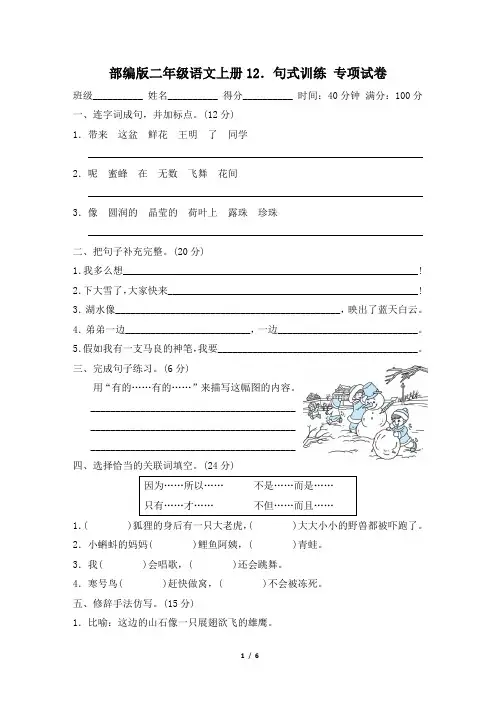 部编版二年级语文上册12．句式训练 专项试卷
班级__________ 姓名__________ 得分__________ 时间：40分钟 满分：100分
一、连字词成句，并加标点。(12分)
1．带来 这盆 鲜花 王明 了 同学
2．呢 蜜蜂 在 无数 飞舞 花间
3．像 圆润的 晶莹的 荷叶上 露珠 珍珠
二、把句子补充完整。(20分)
1.我多么想____________________！
2.下大雪了，大家快来____________________！
3．湖水像____________________，映出了蓝天白云。
4．弟弟一边____________________，一边____________________。
5.假如我有一支马良的神笔，我要____________________。
三、完成句子练习。(6分)
用“有的……有的……”来描写这幅图的内容。
四、选择恰当的关联词填空。(24分)
因为……所以…… 不是……而是……
只有……才…… 不但……而且……
1.( )狐狸的身后有一只大老虎，( )大大小小的野兽都被吓跑了。
2．小蝌蚪的妈妈( )鲤鱼阿姨，( )青蛙。
3．我( )会唱歌，( )还会跳舞。
4．寒号鸟( )赶快做窝，( )不会被冻死。
五、修辞手法仿写。(15分)
1．比喻：这边的山石像一只展翅欲飞的雄鹰。
1 / 6